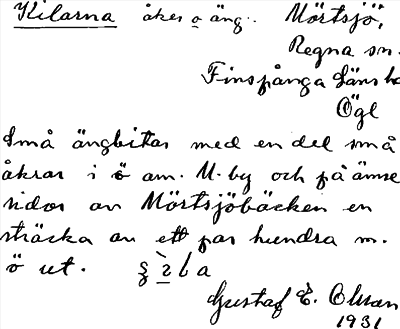 Kilarna åker o äng. Mörtsjö,
Regna sn.
Finspånga läns hd
Ögl
Små ängbitar med en del små
åkrar i ö om. M. by och på ömse
sidor av Mörtsjöbäcken en
sträcka av ett par hundra m.
ö ut.
Gustaf E. Olsson
1931